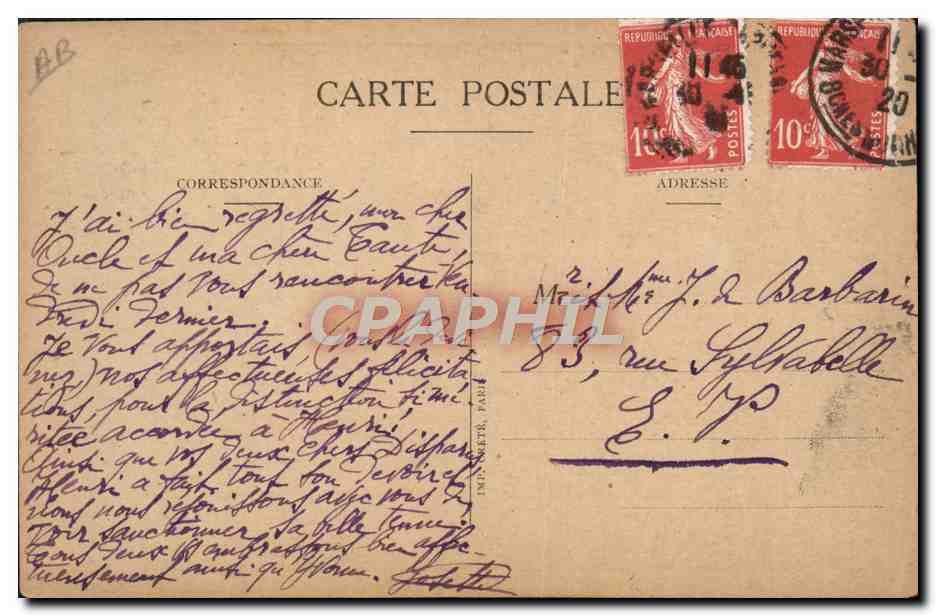 AB
CARTE POSTALE
REPUBLIQUE FRANÇAISE
10c POSTES
11 45
30
REPUBLIQUE FRANÇAISE
10c POSTES
MARS
11
30
20
BCHES DU RHN
CORRESPONDANCE
J'ai bien regretté, mon cher
Oncle et ma chère Tante,
de ne pas vous rencontrer Ven
dredi dernier.
Je vous apportais,
nos affectueuses félicita
tions, pour la distinction si mé
ritée accordée à Henri;
Ainsi que vos deux chers disparus
Henri a fait tout son devoir et
nous nous réjouissons avec vous de
voir sanctionner sa belle tenue.
Tous deux vs embrassons bien affec-
tueusement ainsi qu'Yvonne. Josette
ADRESSE
Mr et Mme J. de Barbarin
83, rue Sylvabelle
E. V.
IMP. CRÉTÉ, PARIS
CPAPHIL